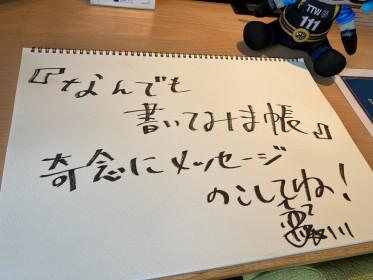 TTW
111
『なんでも
書いてみま帳』
奇念にメッセージ
のこしてね!